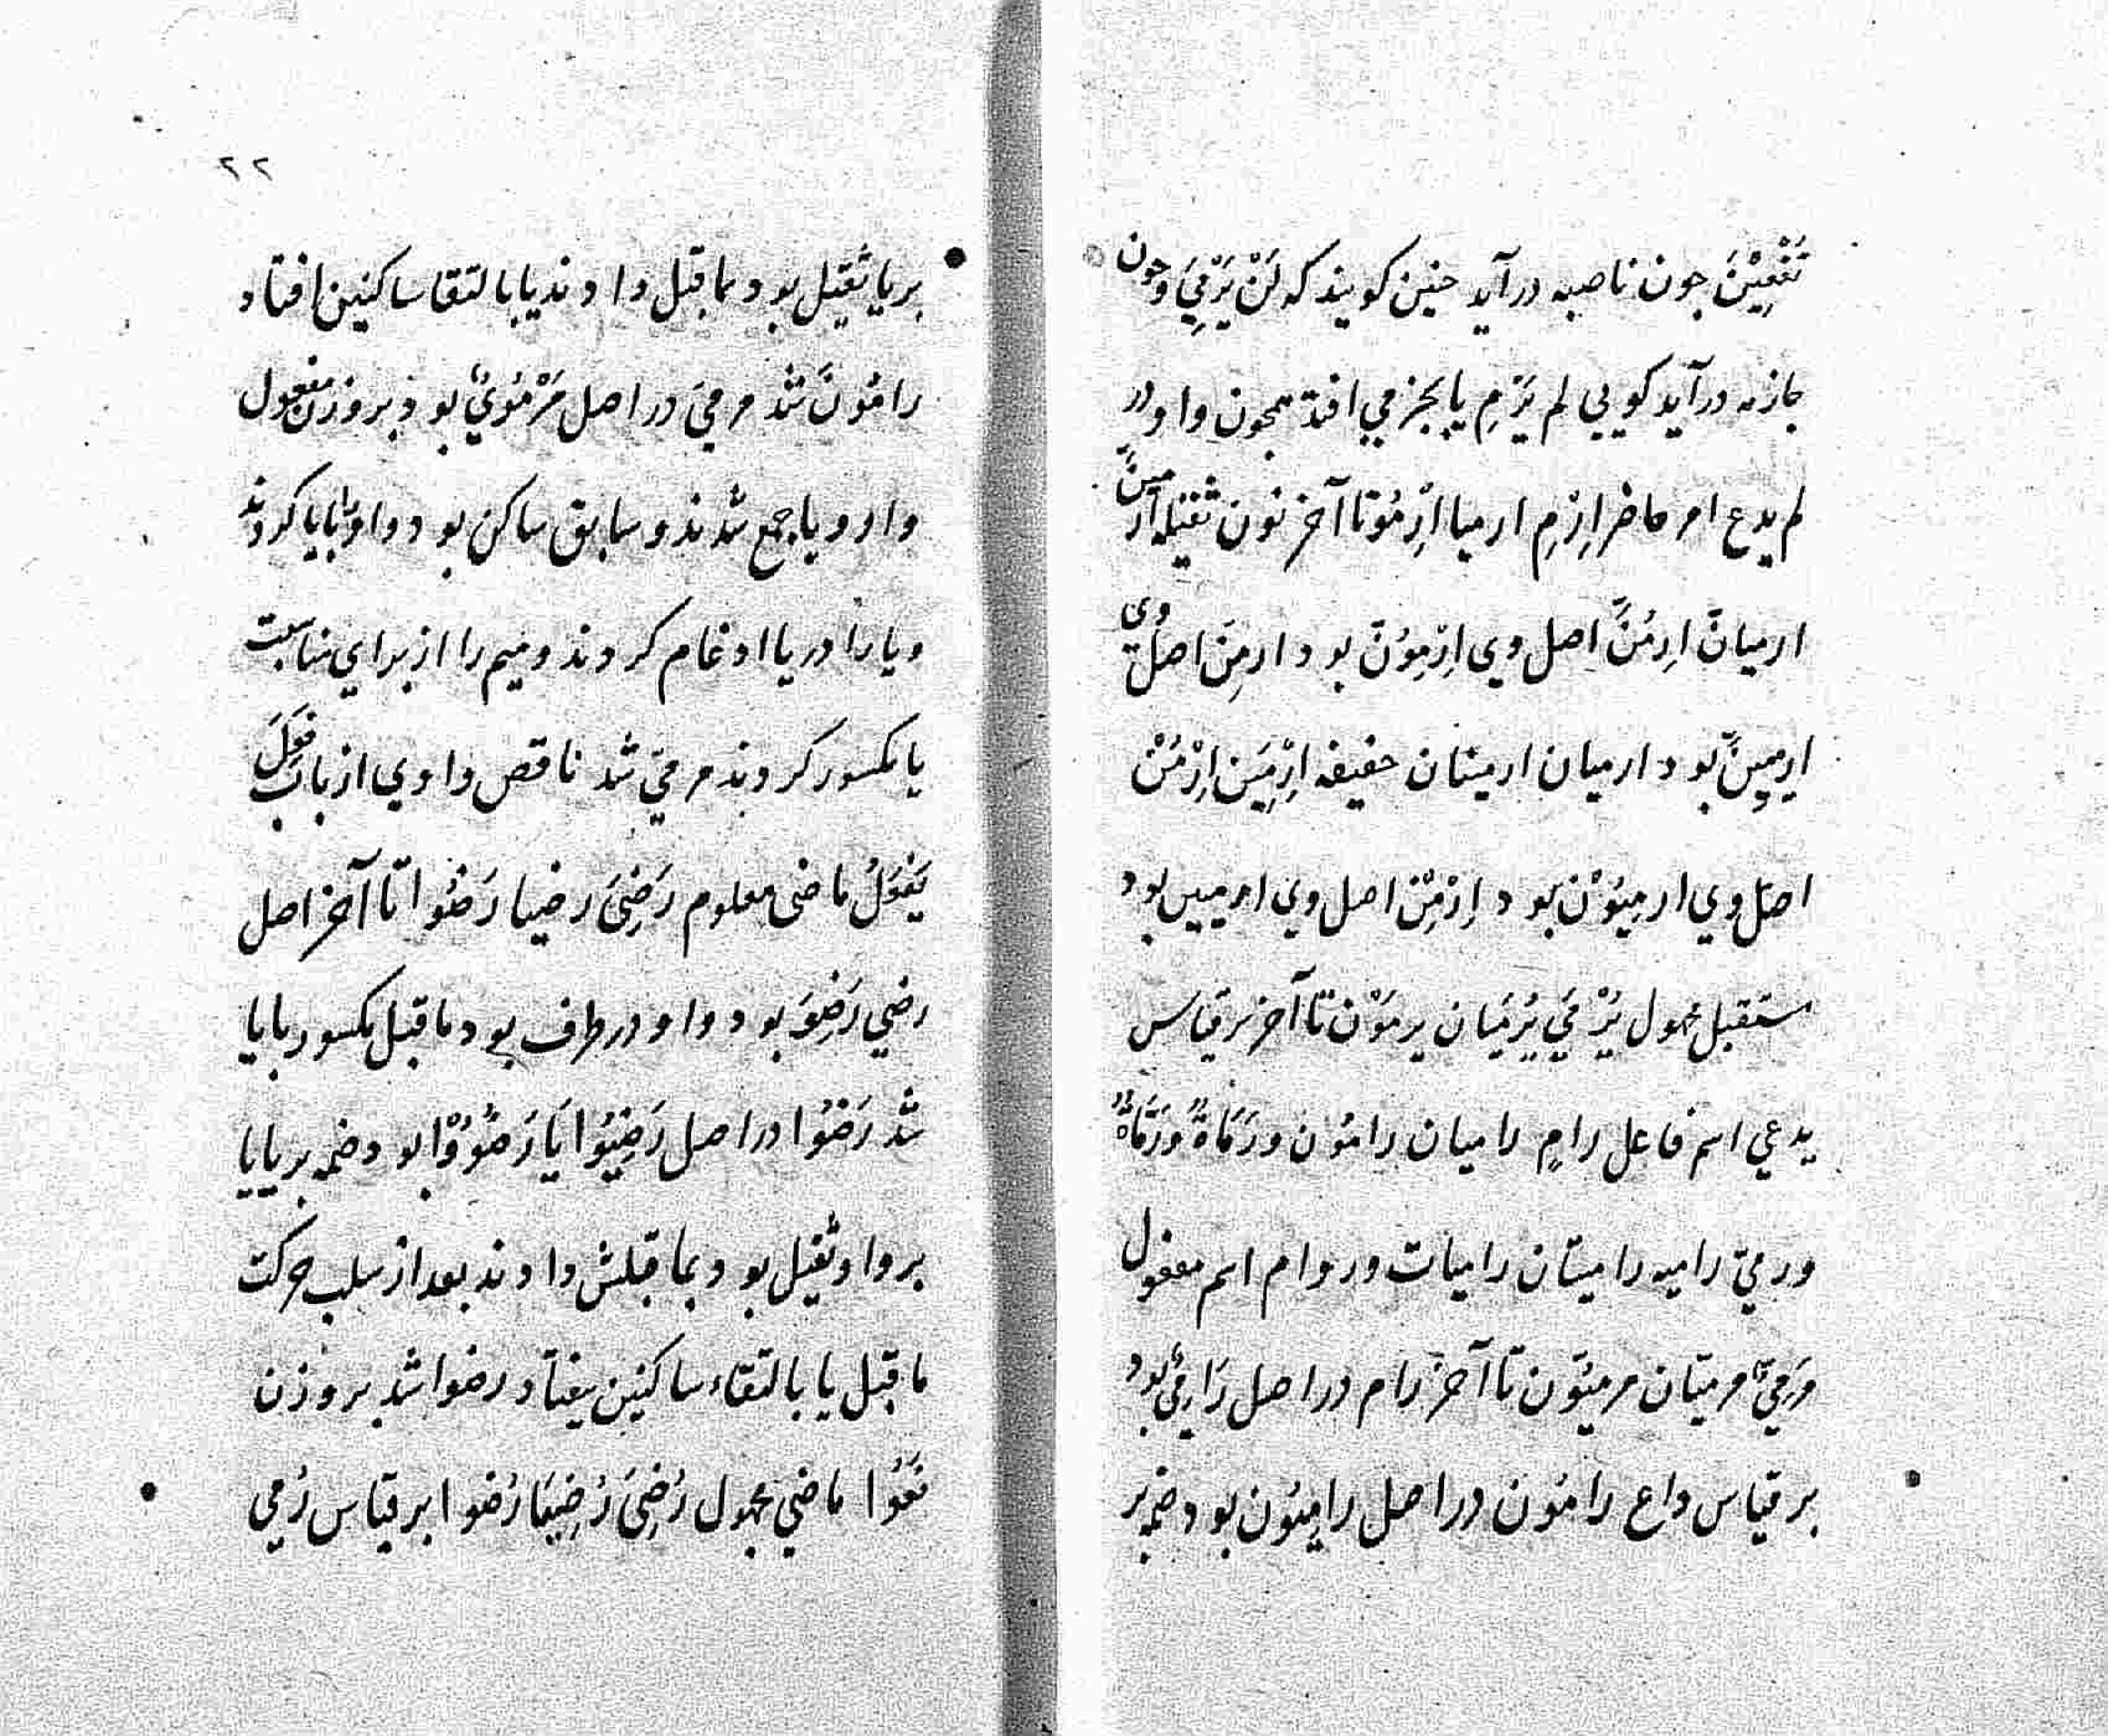 تَفْعِیْنَ جون ناصبه درآید جنین کویند که لَنْ یَرْمِيَ وجون
جازمه درآید کویي لم یَرْمِ یا بجزمي افتد همجون واو در
لم یدع امر حاضر اِرْمِ ارمیا اِرْمُوْتا آخر نون ثقیله اِرْمِیَنَّ
ارمیانّ ارِمُنَّ اصل وي اِرْمِوُنَّ بود ارمِنّ اصل وي
ارمیِنَّ بود ارمیان ارمینان خفیفه اِرْمِیَن اِرْمُنْ
اصل وي ارمِیُوْن بود اِرْمِنْ اصل وي ارمیین بود
مستقبل مجهول یُرْمَي یُرْمَیَان یرمَوْن تا آخر بر قیاس
یدعي اسم فاعل رامٍ رامیان رامُون ورَمَاةٌ ورَمَّاةٌ
ورميّ رامیه رامیتان رامیات وروام اسم مفعول
مَرميّ مرمیّان مرمیّون تا آخر رام در اصل رَامِيٌ بود
بر قیاس داع رامُون در اصل رامِیُون بود ضمه بر
٢٢
بر یا ثقیل بود بما قبل دادند یا بالتقا ساکنین افتاد
رامُونَ شد مرميّ در اصل مَرْمُويٌ بود بر وزن مفعول
واو و یا جمع شدند و سابق ساکن بود واو را بایا کردند
و یا را در یا ادغام کردند و میم را از براي مناسبت
یا مکسور کردند مرميّ شد ناقص واوي از باب فَعِلَ
یَفْعَلُ ماضی معلوم رَضِيَ رضیا رَضُوا تا آخر اصل
رضي رَضِوَ بود واو در طرف بود ما قبل مکسور بایا
شد رَضُوا در اصل رَضِیُوا یَا رَضِوُوْا بود ضمه بر یا یا
بر واو ثقیل بود بما قبلش دادند بعد از سلب حرکت
ما قبل یا بالتقاء ساکنین بیفتاد رضوا شد بر وزن
فَعُوا ماضي مجهول رُضِيَ رُضِیَا رُضوا بر قیاس رُمي